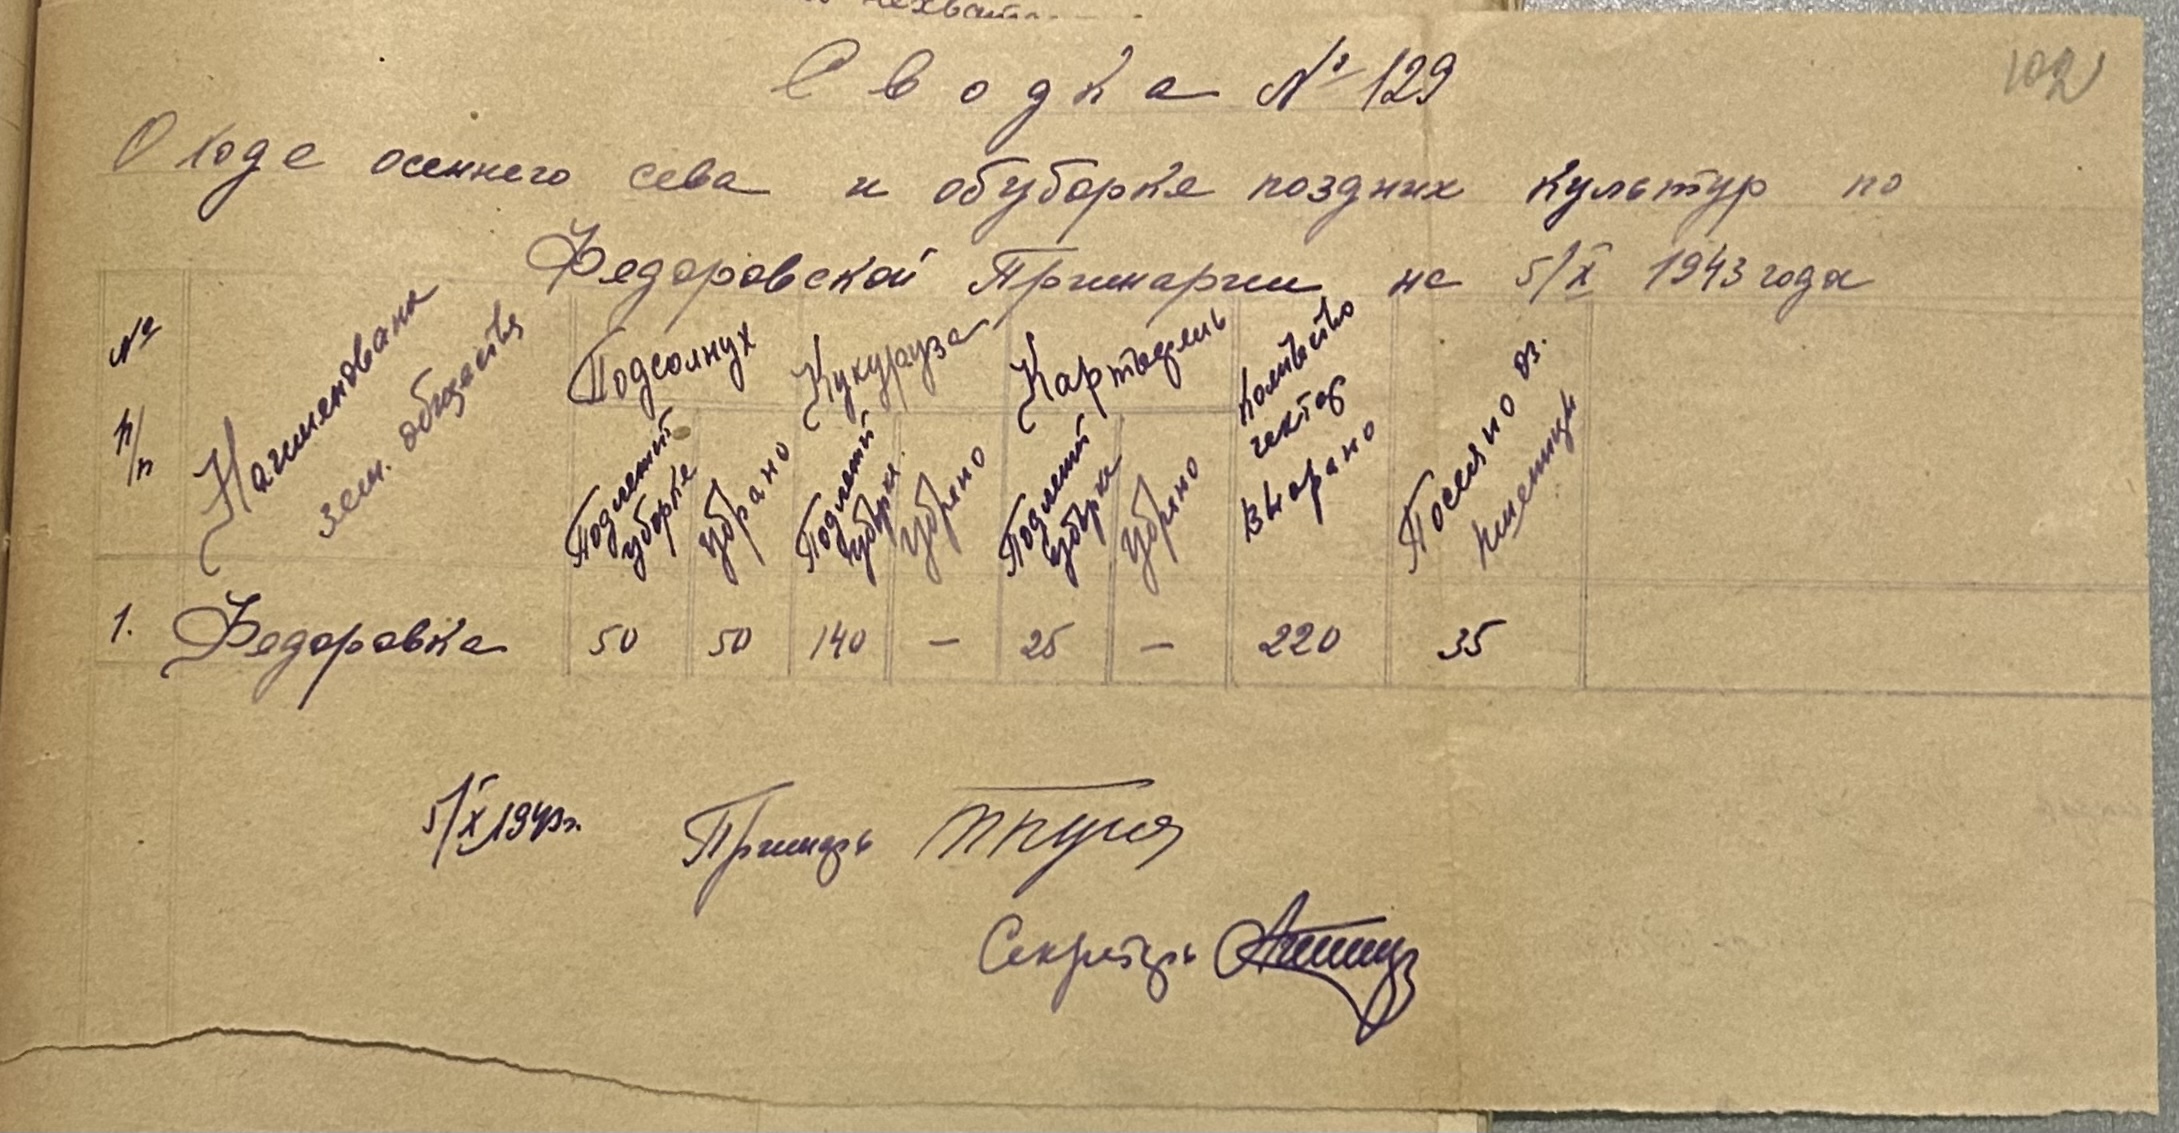 102
Сводка № 129
О ходе осеннего сева и обуборке поздних культур по
Федоровской Примарии на 5/X 1943 года
№ п/п | Наименован. зем. общества | Подсолнух | Кукуруза | Картофель | Количество гектар вырано | Посеяно оз. пшеницы
Подлежит уборке | убрано | Подлежит уборке | убрано | Подлежит уборке | убрано
1. Федоровка | 50 | 50 | 140 | — | 25 | — | 220 | 35
5/X 1943 г. Примарь
Секретарь